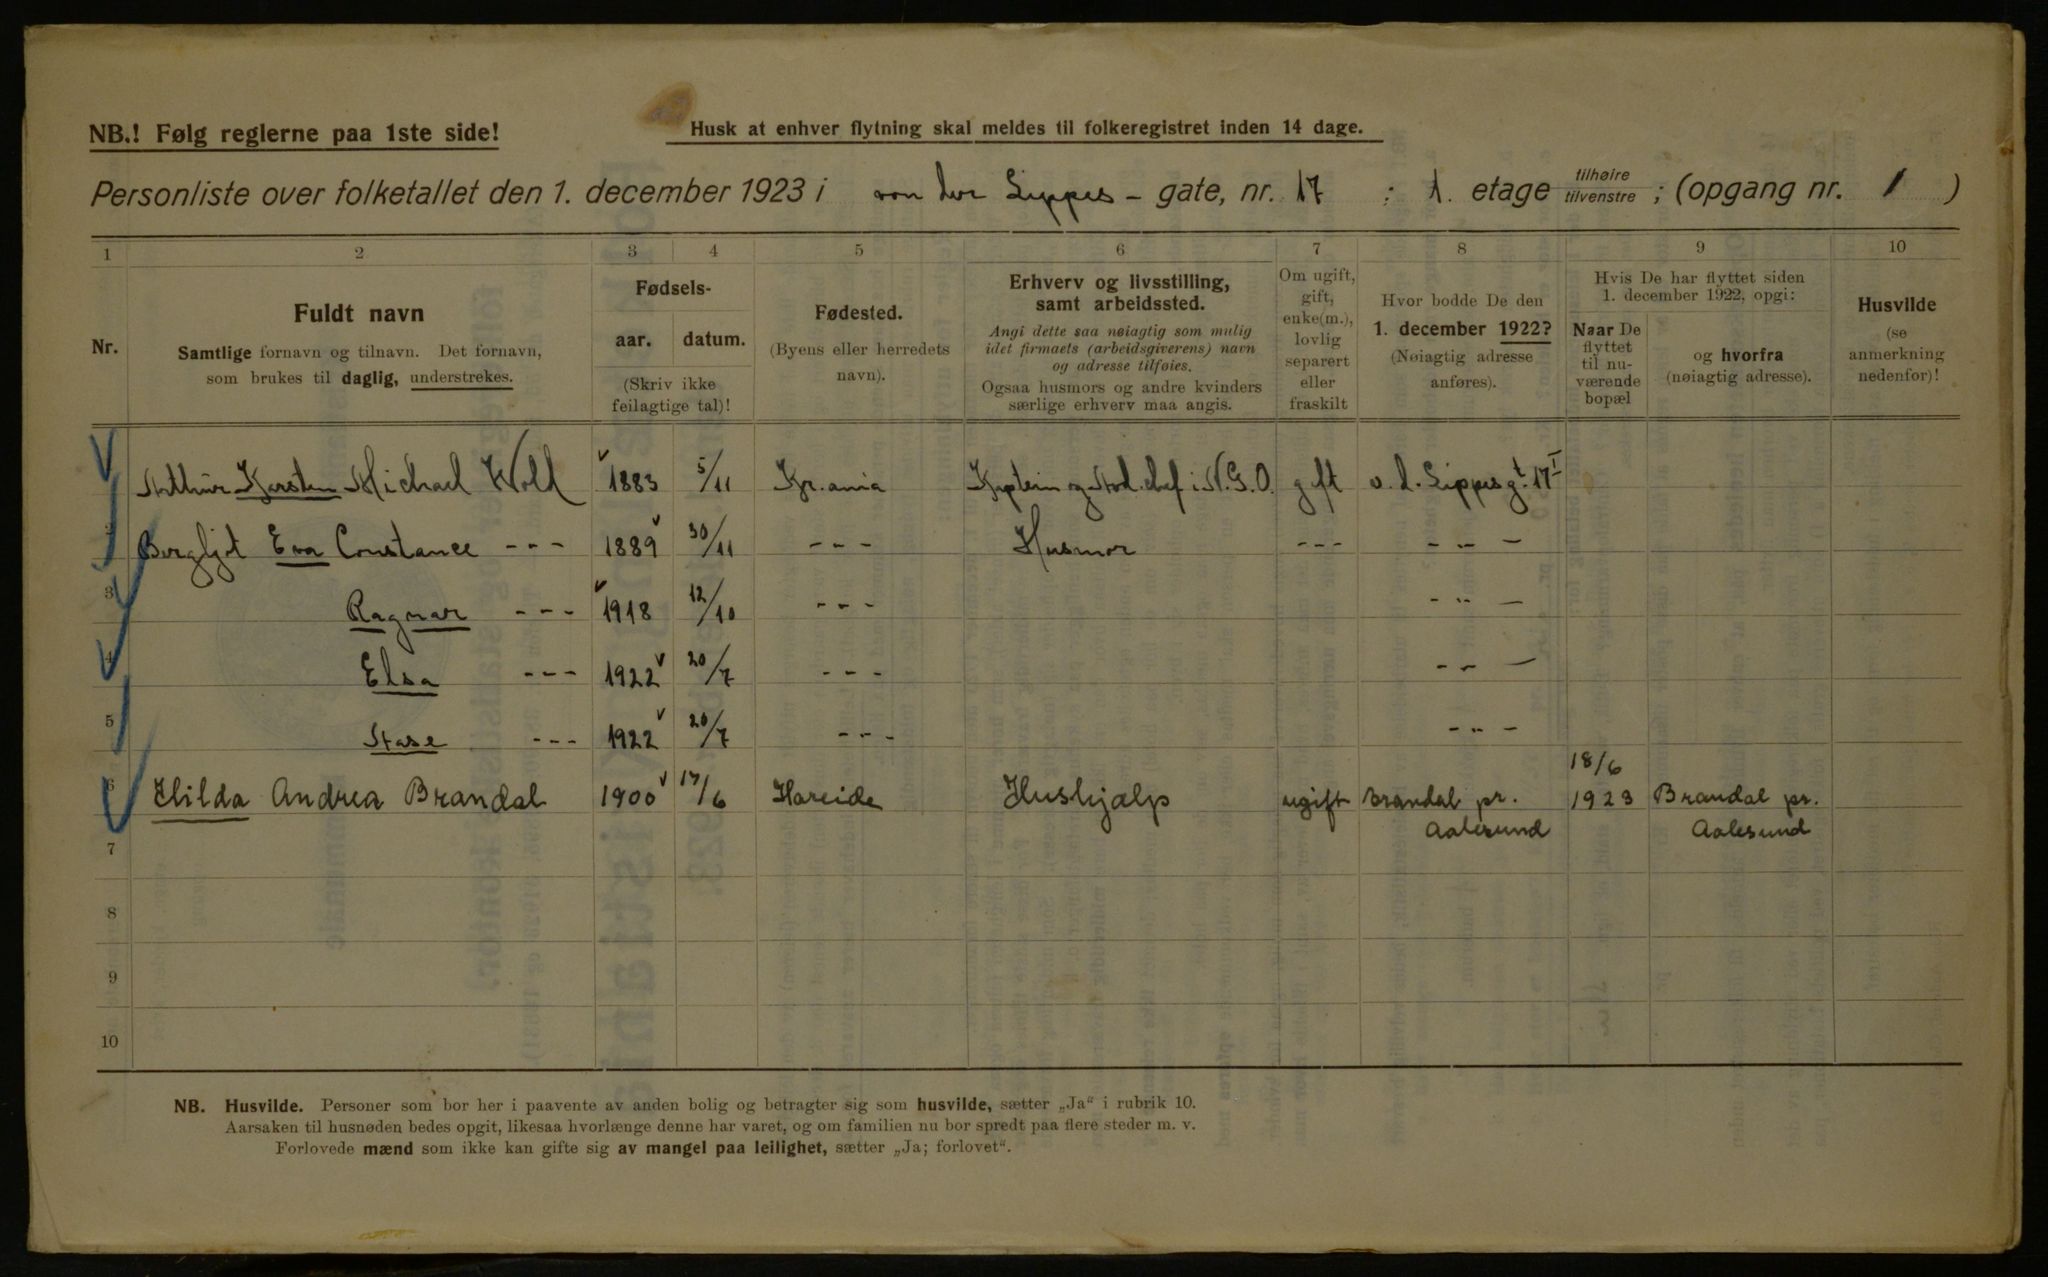 NB.! Følg reglerne paa 1ste side!
Husk at enhver flytning skal meldes til folkeregistret inden 14 dage.
Personliste over folketallet den 1. december 1923 i von der Lippes - gate, nr. 17 ; 1. etage tilhøire tilvenstre ; (opgang nr. 1 )
1 2 3 4 5 6 7 8 9 10
Nr.
Fuldt navn
Samtlige fornavn og tilnavn. Det fornavn,
som brukes til daglig, understrekes.
Fødsels-
aar. datum.
(Skriv ikke
feilagtige tal)!
Fødested.
(Byens eller herredets
navn).
Erhverv og livsstilling,
samt arbeidssted.
Angi dette saa nøiagtig som mulig
idet firmaets (arbeidsgiverens) navn
og adresse tilføies.
Ogsaa husmors og andre kvinders
særlige erhverv maa angis.
Om ugift,
gift,
enke(m.),
lovlig
separert
eller
fraskilt
Hvor bodde De den
1. december 1922?
(Nøiagtig adresse
anføres).
Hvis De har flyttet siden
1. december 1922, opgi:
Naar De
flyttet
til nu-
værende
bopæl
og hvorfra
(nøiagtig adresse).
Husvilde
(se
anmerkning
nedenfor)!
Arthur Karsten Michael Wold 1883 5/11 Kr.ania Kaptein og Avd. chef i N.G.O. gift v. d. Lippes gt. 17 I
2 Bergljot Eva Constance --- 1889 30/11 --- Husmor --- - " -
3 Ragnar --- 1918 12/10 --- - " -
4 Elsa --- 1922 20/7 --- - " -
5 Stase --- 1922 20/7 --- - " -
6 Hilda Andrea Brandal 1900 17/6 Hareide Hushjælp ugift Brandal pr. Aalesund 18/6 1923 Brandal pr. Aalesund
7
8
9
10
NB. Husvilde. Personer som bor her i paavente av anden bolig og betragter sig som husvilde, sætter „Ja“ i rubrik 10.
Aarsaken til husnøden bedes opgit, likesaa hvorlænge denne har varet, og om familien nu bor spredt paa flere steder m. v.
Forlovede mænd som ikke kan gifte sig av mangel paa leilighet, sætter „Ja; forlovet“.